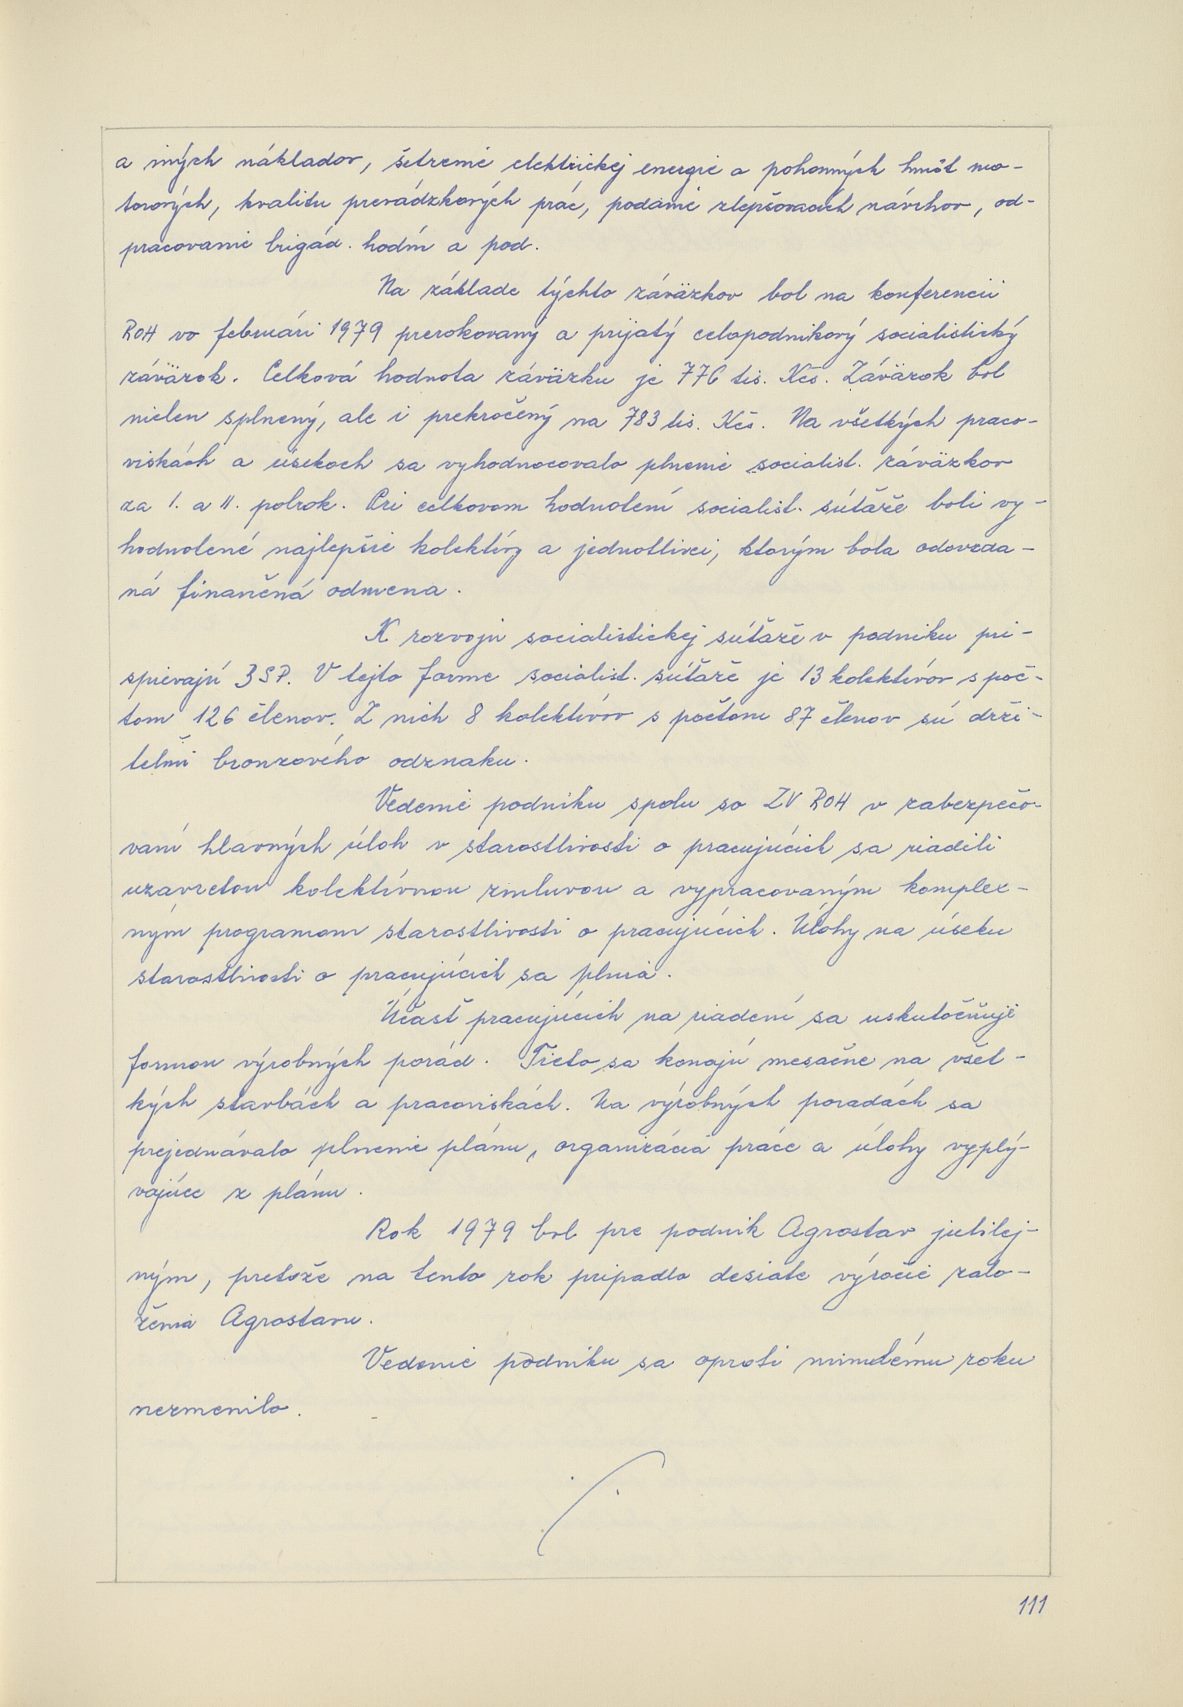 a iných nákladov, šetrenie elektrickej energie a pohonných hmôt mo-
torových, kvalitu prevádzkových prác, podanie zlepšovacích návrhov, od-
pracovanie brigád. hodín a pod.
Na základe týchto záväzkov bol na konferencii
ROH vo februári 1979 prerokovaný a prijatý celopodnikový socialistický
záväzok. Celková hodnota záväzku je 776 tis. Kčs. Záväzok bol
nielen splnený, ale i prekročený na 783 tis. Kčs. Na všetkých praco-
viskách a úsekoch sa vyhodnocovalo plnenie socialist. záväzkov
za I. a II. polrok. Pri celkovom hodnotení socialist. súťaže boli vy-
hodnotené najlepšie kolektívy a jednotlivci, ktorým bola odovzda-
ná finančná odmena.
K rozvoju socialistickej súťaže v podniku pri-
spievajú BSP. V tejto forme socialist. súťaže je 13 kolektívov s poč-
tom 126 členov. Z nich 8 kolektívov s počtom 87 členov sú drži-
teľmi bronzového odznaku.
Vedenie podniku spolu so ZV ROH v zabezpečo-
vaní hlavných úloh v starostlivosti o pracujúcich sa riadili
uzavretou kolektívnou zmluvou a vypracovaným komplex-
ným programom starostlivosti o pracujúcich. Úlohy na úseku
starostlivosti o pracujúcich sa plnia.
Účasť pracujúcich na riadení sa uskutočňuje
formou výrobných porád. Tieto sa konajú mesačne na všet-
kých stavbách a pracoviskách. Na výrobných poradách sa
prejednávalo plnenie plánu, organizácia práce a úlohy vyplý-
vajúce z plánu.
Rok 1979 bol pre podnik Agrostav jubilej-
ným, pretože na tento rok pripadlo desiate výročie zalo-
ženia Agrostavu.
Vedenie podniku sa oproti minulému roku
nezmenilo.
111